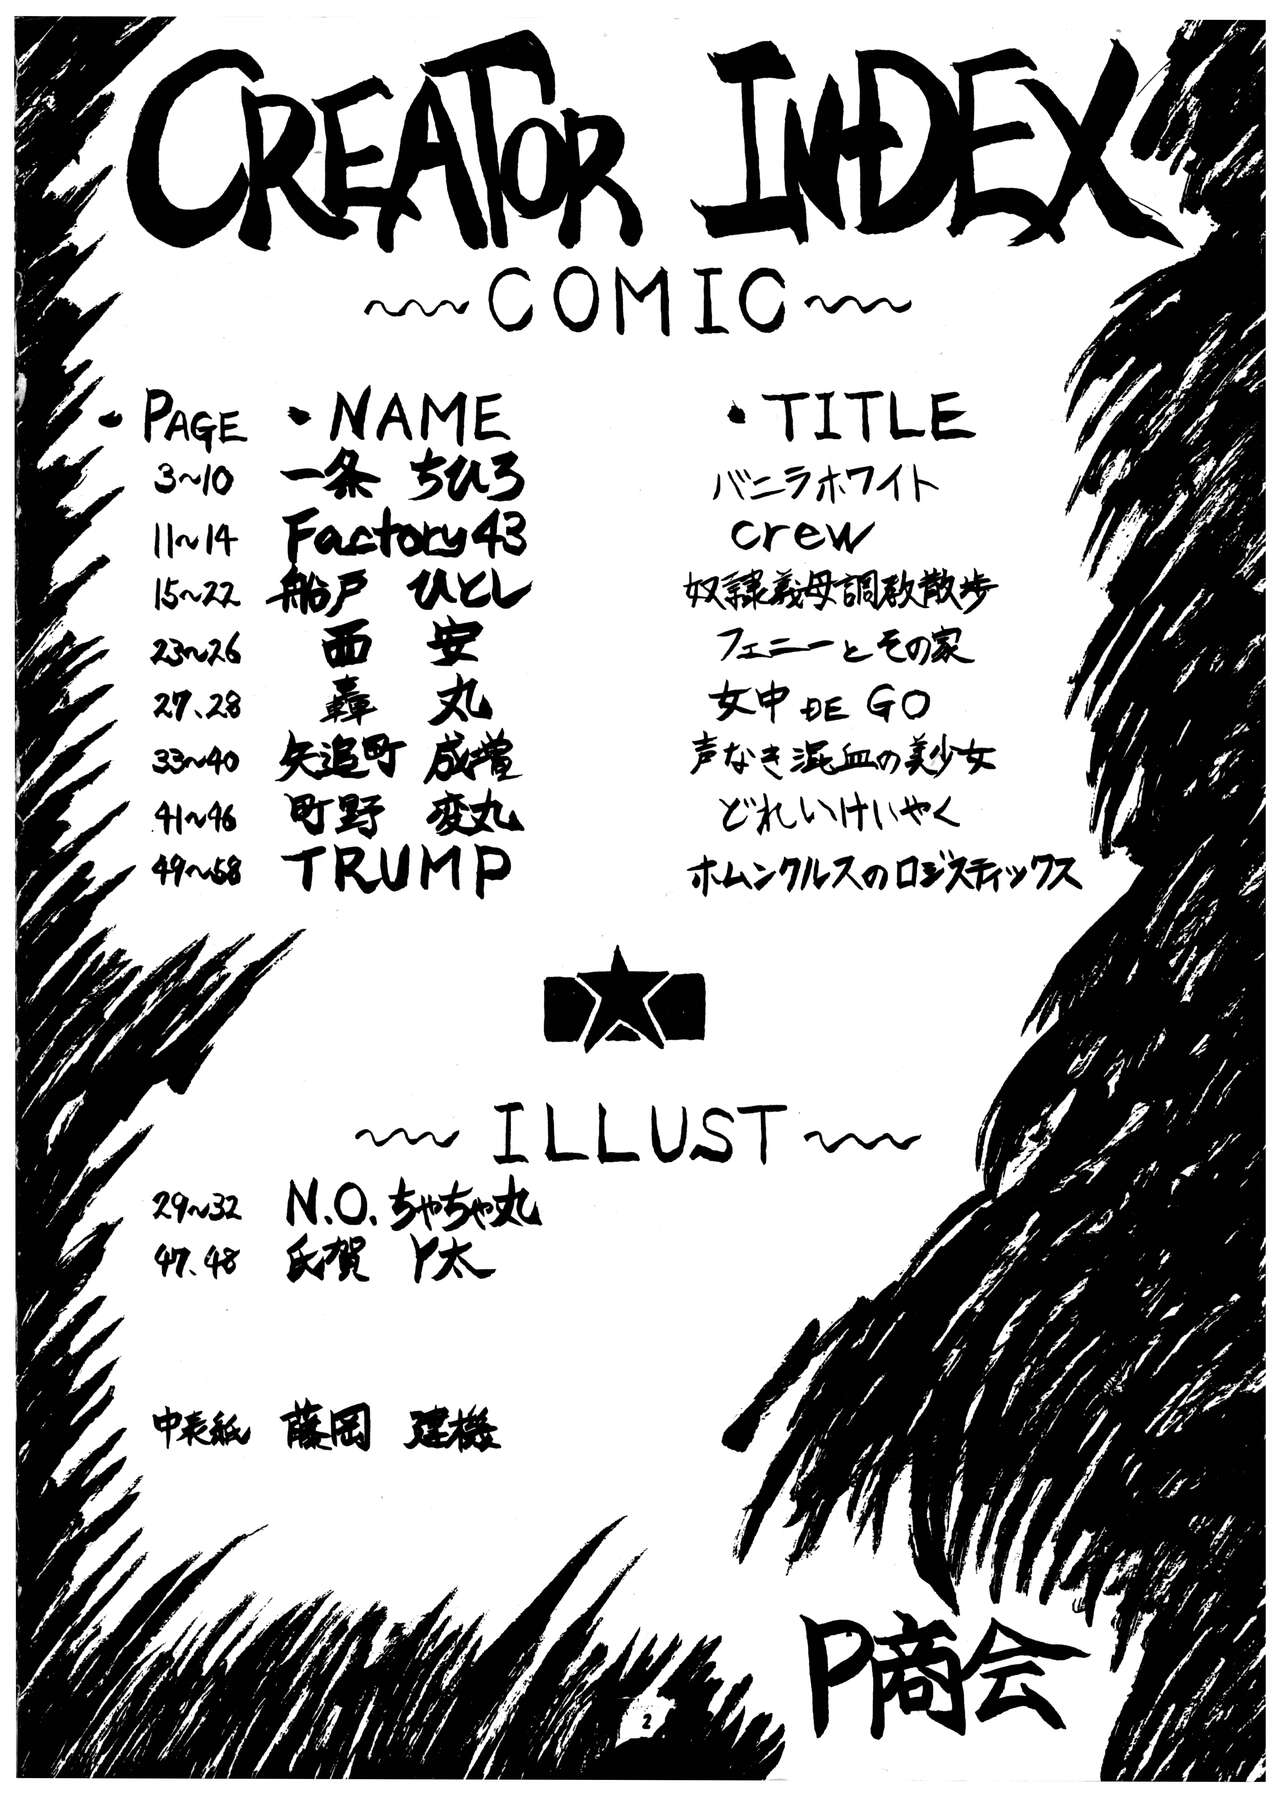 CREATOR INDEX
~~COMIC~~
・PAGE ・NAME ・TITLE
3~10 一条 ちひろ バニラホワイト
11~14 Factory43 crew
15~22 船戸 ひとし 奴隷義母調教散歩
23~26 西安 フェニーとその家
27.28 轟丸 女中 DE GO
33~40 矢追町 成増 声なき混血の美少女
41~46 町野 変丸 どれいけいやく
49~58 TRUMP ホムンクルスのロジスティックス
~~ILLUST~~
29~32 N.O.ちゃちゃ丸
47.48 氏賀 Y太
中表紙 藤岡 建機
P商会
2